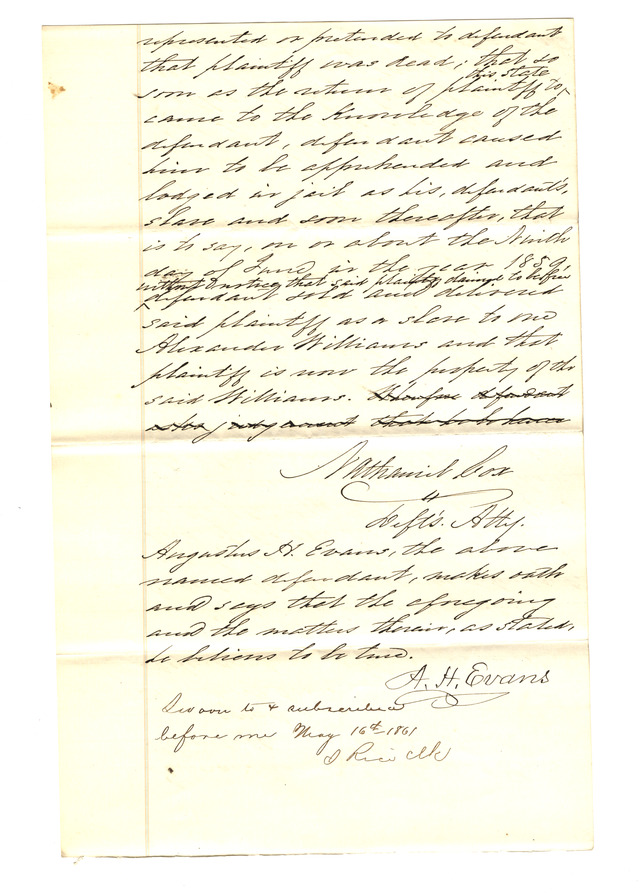 represented or pretended to defendant
that plaintiff was dead; that so
this state
soon as the return of plaintiff to
came to the knowledge of the
defendant, defendant caused
him to be apprehended and
lodged in jail as his, defendant's,
slave and soon thereafter, that
is to say, on or about the Ninth
day of June in the year 1859,
without notice that said plaintiff claimed to be free
defendant sold and delivered
said plaintiff as a slave to one
Alexander Williams and that
plaintiff is now the property of the
said Williams. Wherefore defendant
asks judgment that he be hence
Nathaniel Cox
Deft's. Atty.
Augustus H. Evans, the above
named defendant, makes oath
and says that the foregoing
and the matters therein, as stated,
he believes to be true.
A. H. Evans
Sworn to & subscribed
before me May 16th 1861
Rice Clk